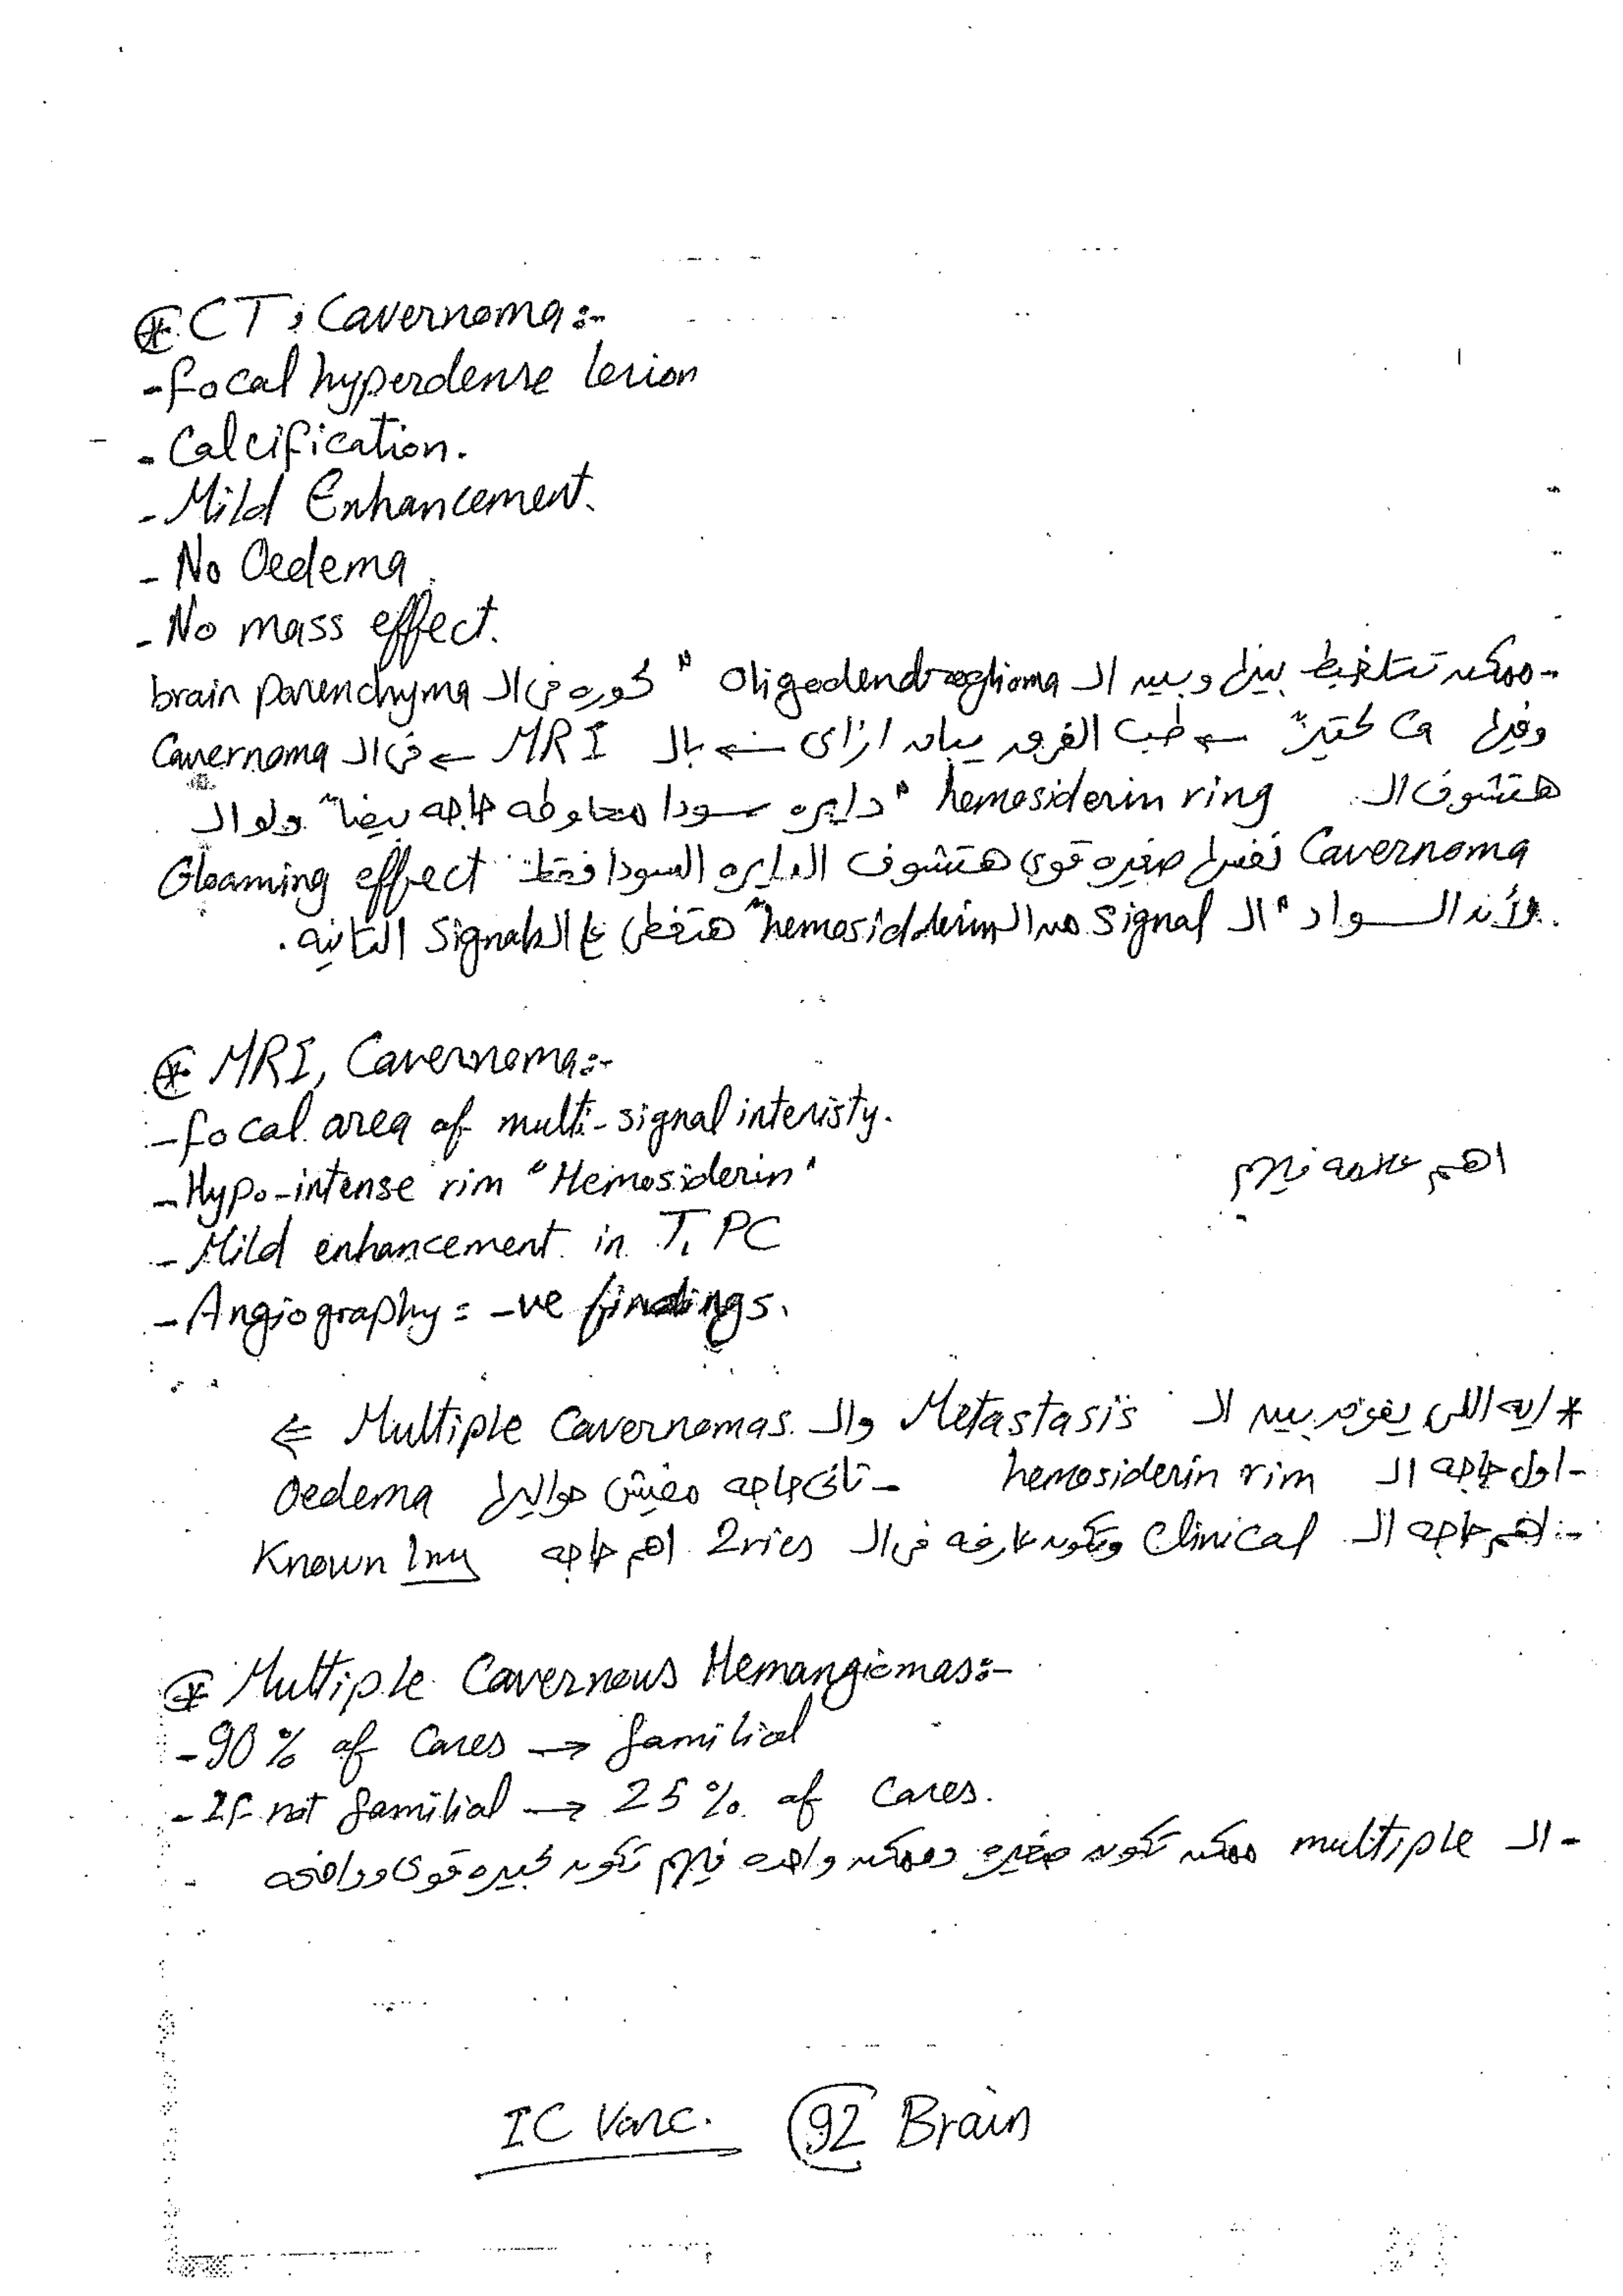 * CT, Cavernoma:-
- focal hyperdense lesion
- Calcification.
- Mild Enhancement.
- No Oedema.
- No mass effect.
- ممكن تتلخبط بينها وبين الـ Oligodendroglioma " كوره فى الـ brain parenchyma
وفيها Ca كتير" ← طب الفرق يبان ازاى ← بالـ MRI ← فى الـ Cavernoma
هتشوف الـ hemosiderin ring " دايره سودا محاوطه حاجه بيضا" ولو الـ
Cavernoma نفسها صغيره قوى هتشوف الدايره السودا فقط Gloaming effect
لأن السواد " الـ signal من الـ hemosidderin" هتغطى ع الـ signals التانيه.
* MRI, Cavernoma:-
- focal area of multi-signal intenisty.
- Hypo-intense rim "Hemosiderin" اهم علامه فيهم
- Mild enhancement in T1 PC
- Angiography = -ve findings.
* ايه اللى يفرق بين الـ Metastasis والـ Multiple Cavernomas ⇐
- اول حاجه الـ hemosiderin rim - تانى حاجه مفيش حواليها Oedema
- اهم حاجه الـ Clinical وتكون عارفه فى الـ 2ries اهم حاجه Known 1ry
* Multiple Cavernous Hemangiomas:-
- 90% of Cases → familial
- If not familial → 25% of Cases.
- الـ multiple ممكن تكون صغيره وممكن واحده فيهم تكون كبيره قوى وواضحه
IC Vasc. 92 Brain